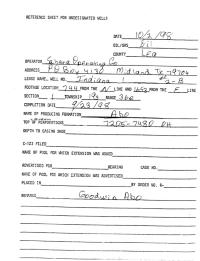 REFERENCE SHEET FOR UNDESIGNATED WELLS
DATE 10/2/98
OIL/GAS Oil
COUNTY Lea
OPERATOR Sahara Operating Co
ADDRESS PO Box 4130 Midland Tx 79704
LEASE NAME, WELL NO. Indiana 1 #2-B
FOOTAGE LOCATION 744 FROM THE N LINE AND FROM THE E LINE
SECTION 1 TOWNSHIP 19s RANGE 36e
COMPLETION DATE 9/28/98
NAME OF PRODUCING FORMATION Abo
TOP OF PERFORATIONS 7205-7480 OH
DEPTH TO CASING SHOE
C-123 FILED
NAME OF POOL FOR WHICH EXTENSION WAS ASKED
ADVERTISED FOR HEARING CASE NO.
NAME OF POOL FOR WHICH EXTENSION WAS ADVERTISED
PLACED IN BY ORDER NO. R-
REMARKS Goodwin Abo